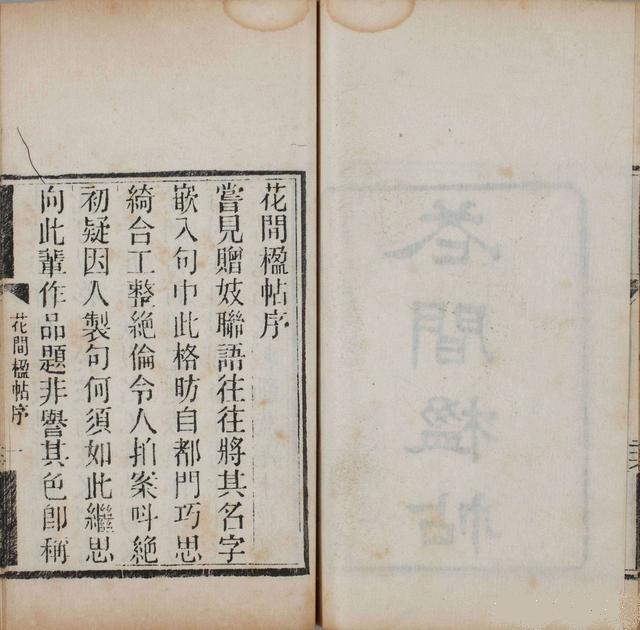 花間楹帖序
嘗見贈妓聯語往往將其名字
嵌入句中此格昉自都門巧思
綺合工整絶倫令人拍案呌絶
初疑因人製句何須如此繼思
向此輩作品題非譽其色卽稱
花間楹帖序 一
花間楹帖